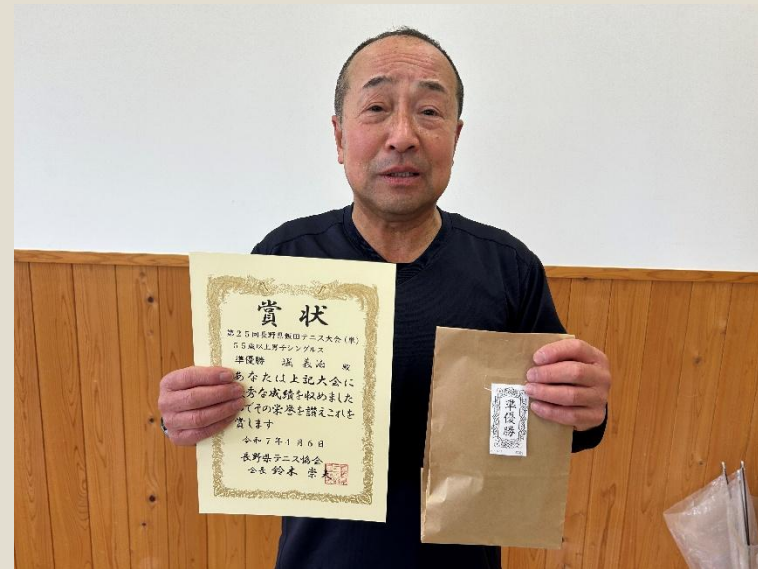 賞状
第25回長野県飯田テニス大会(車)
55歳以上男子シングルス
準優勝 堀 義治 殿
あなたは上記大会に
秀な成績を収めました
てその栄誉を讃えこれを
賞します
令和7年1月6日
長野県テニス協会
会長 鈴木 崇
準優勝